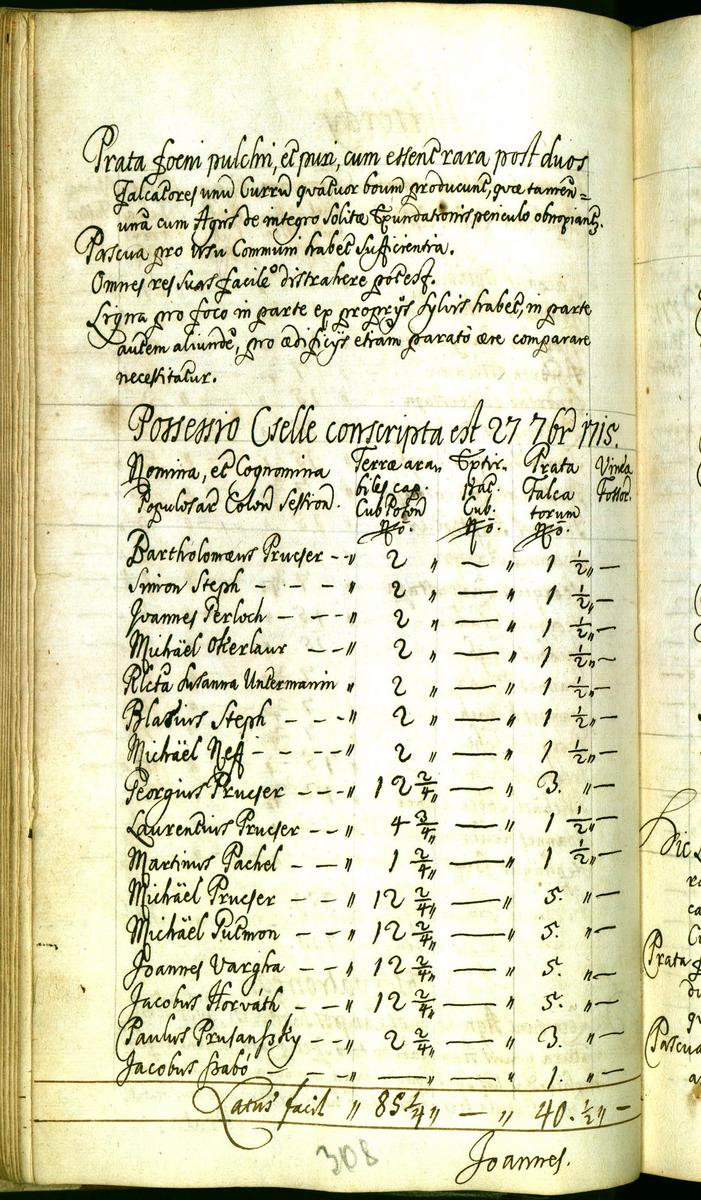 Prata foeni pulchri, et puri, cum essent rara post duos
falcatores unū Currū quatuor boum producunt, quæ tamen =
unà cum Agris de integro solitæ Exundationis periculo obnoxiantr.
Pascua pro usu Communi habet sufficientia.
Omnes res suas facile distrahere potest.
Ligna pro foco in parte ex proprÿs sylvis habet, in parte
autem aliunde, pro ædificÿs etiam parato ære comparare
necessitatur.
Possessio Cselle conscripta est 27 7br 1715.
Nomina, et Cognomina Terræ ara- Extir- Prata Vinea
Populosar Colon Session. biles cap. pat. Falca Fossor.
Cub Poson Cub. torum
No. No. No.
Bartholomæus Prucser - - " 2 " — " 1 1/2 " —
Simon Steph - - - " 2 " — " 1 1/2 " —
Joannes Perloch - - - " 2 " — " 1 1/2 " —
Michäel Okerlaur - - " 2 " — " 1 1/2 " —
Relicta Susanna Untermanin " 2 " — " 1 1/2 " —
Blasius Steph - - - " 2 " — " 1 1/2 " —
Michäel Neff - - - " 2 " — " 1 1/2 " —
Georgius Prucser - - - " 12 2/4 " — " 3. " —
Laurentius Prucser - - " 4 3/4 " — " 1 1/2 " —
Martinus Pachel - - " 1 2/4 " — " 1 1/2 " —
Michäel Prucser - - " 12 2/4 " — " 5. " —
Michäel Putmon - - " 12 2/4 " — " 5. " —
Joannes Vargha - - " 12 2/4 " — " 5. " —
Jacobus Horváth - - " 12 2/4 " — " 5. " —
Paulus Prusanszky - - " 2 2/4 " — " 3. " —
Jacobus Szabó - - " — " — " 1. " —
Latus facit " 85 1/4 " — " 40. 1/2 " —
308
Joannes.
Hic
Prata
Pascua